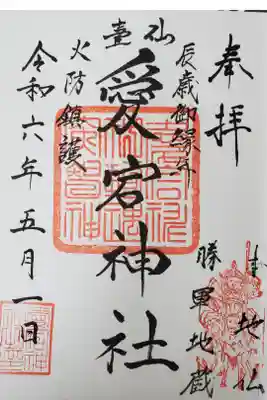 奉拝
本地仏
勝軍地蔵
辰歳御縁年
仙臺
愛宕神社
火防鎮護
令和六年五月一日